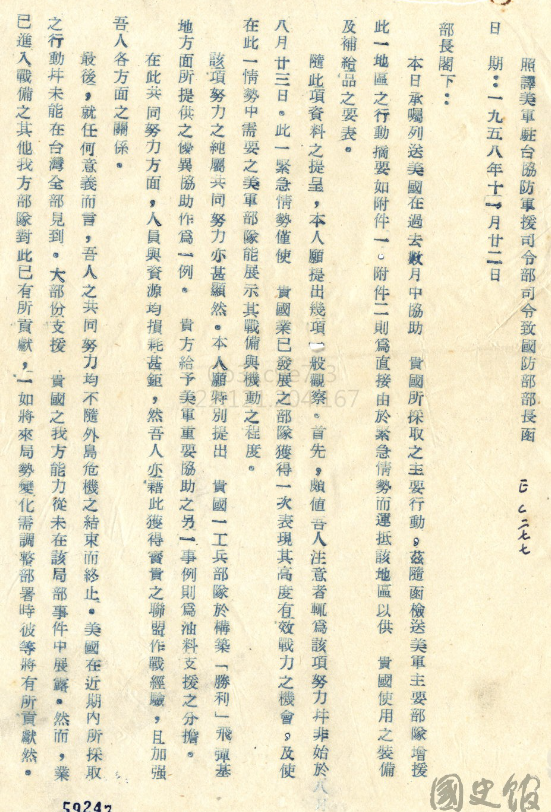 照譯美軍駐台協防軍援司令部司令致國防部部長函
E乙二七七
日　期：一九五八年十一月廿二日
部長閣下：
本日承囑列送美國在過去數月中協助　貴國所採取之主要行動，茲隨函檢送美軍主要部隊增援
此一地區之行動摘要如附件一。附件二則為直接由於緊急情勢而運抵該地區以供　貴國使用之裝備
及補給品之要表。
隨此項資料之提呈，本人願提出幾項一般觀察。首先，頗值吾人注意者輒為該項努力幷非始於
八月廿三日。此一緊急情勢僅使　貴國業已發展之部隊獲得一次表現其高度有效戰力之機會，及使
在此一情勢中需要之美軍部隊能展示其戰備與機動之程度。
該項努力之純屬共同努力亦甚顯然。本人願特別提出　貴國一工兵部隊於構築「勝利」飛彈基
地方面所提供之優異協助作為一例。　貴方給予美軍重要協助之另一事例則為油料支援之分擔。
在此共同努力方面，人員與資源均損耗甚鉅，然吾人亦藉此獲得寶貴之聯盟作戰經驗，且加強
吾人各方面之關係。
最後，就任何意義而言，吾人之共同努力均不隨外島危機之結束而終止。美國在近期內所採取
之行動幷未能在台灣全部見到。大部份支援　貴國之我方能力從未在該局部事件中展露。然而，業
已進入戰備之其他我方部隊對此已有所貢獻，一如將來局勢變化需調整部署時彼等將有所貢獻然。
國史館